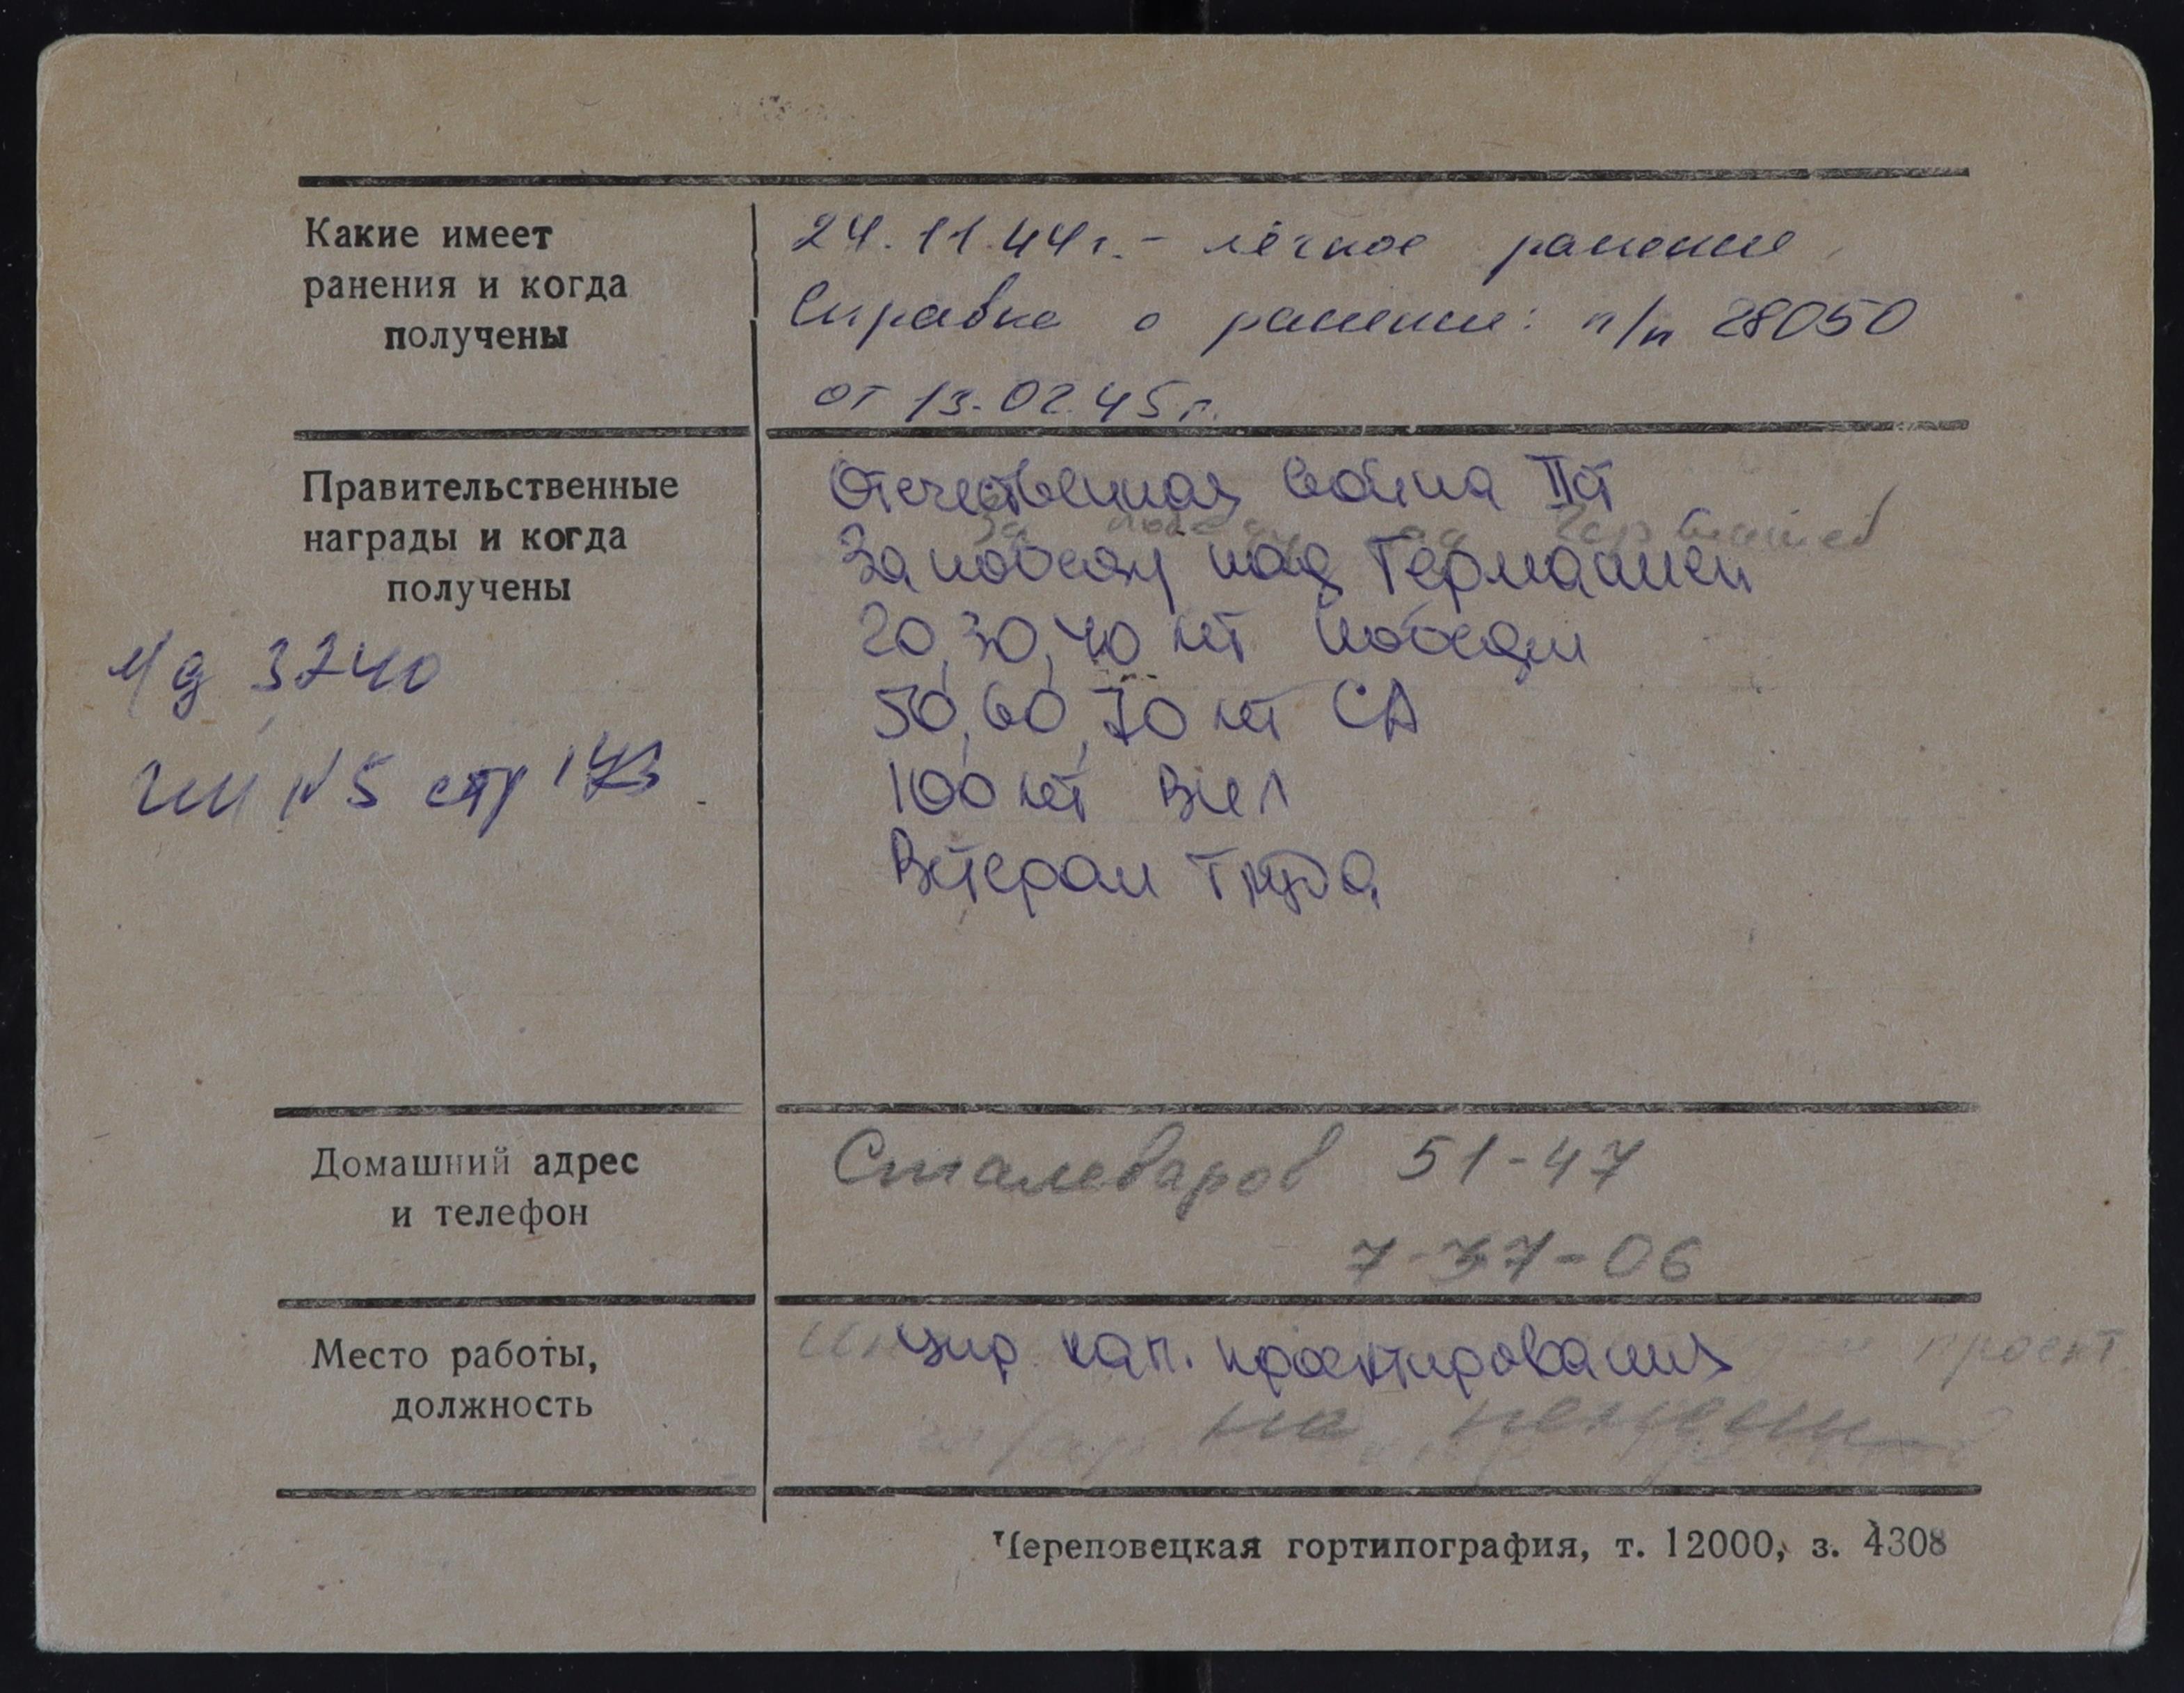 Какие имеет
ранения и когда
получены
24.11.44г. - лёгкое ранение
Справка о ранении: п/п 28050
от 13.02.45г.
Правительственные
награды и когда
получены
Отечественная война II ст
За победу над Германией
За победу над Германией
20, 30, 40 лет Победы
50, 60, 70 лет СА
100 лет ВИЛ
Ветеран труда
М/д 3240
стр
Домашний адрес
и телефон
Сталеваров 51-47
7-37-06
Место работы,
должность
кап. проектирования
проект.
на пенсии
Череповецкая гортипография, т. 12000, з. 4308